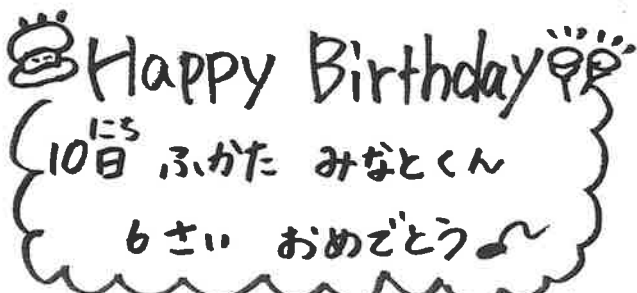 Happy Birthday
10日 ふかた みなとくん
にち
6さい おめでとう